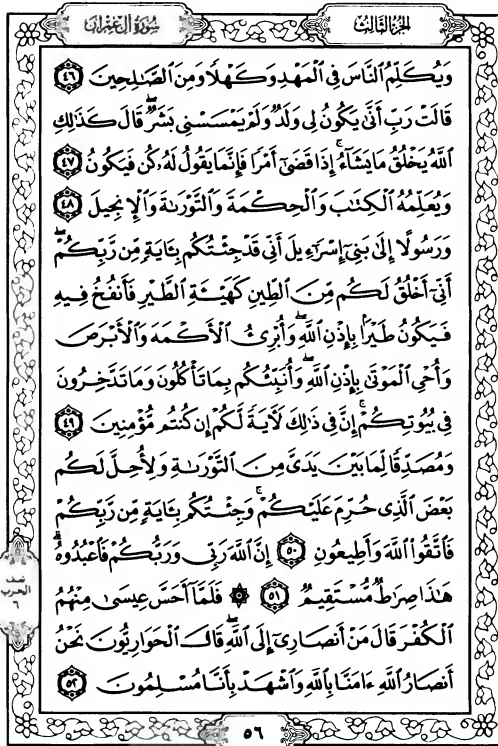 سُورَةُ آلِ عِمْرَانَ
الجزء الثالث
وَيُكَلِّمُ ٱلنَّاسَ فِى ٱلْمَهْدِ وَكَهْلًا وَمِنَ ٱلصَّٰلِحِينَ ٤٦
قَالَتْ رَبِّ أَنَّىٰ يَكُونُ لِى وَلَدٌ وَلَمْ يَمْسَسْنِى بَشَرٌ ۖ قَالَ كَذَٰلِكِ
ٱللَّهُ يَخْلُقُ مَا يَشَآءُ ۚ إِذَا قَضَىٰٓ أَمْرًا فَإِنَّمَا يَقُولُ لَهُۥ كُن فَيَكُونُ ٤٧
وَيُعَلِّمُهُ ٱلْكِتَٰبَ وَٱلْحِكْمَةَ وَٱلتَّوْرَىٰةَ وَٱلْإِنجِيلَ ٤٨
وَرَسُولًا إِلَىٰ بَنِىٓ إِسْرَٰٓءِيلَ أَنِّى قَدْ جِئْتُكُم بِـَٔايَةٍ مِّن رَّبِّكُمْ ۖ
أَنِّىٓ أَخْلُقُ لَكُم مِّنَ ٱلطِّينِ كَهَيْـَٔةِ ٱلطَّيْرِ فَأَنفُخُ فِيهِ
فَيَكُونُ طَيْرًۢا بِإِذْنِ ٱللَّهِ ۖ وَأُبْرِئُ ٱلْأَكْمَهَ وَٱلْأَبْرَصَ
وَأُحْىِ ٱلْمَوْتَىٰ بِإِذْنِ ٱللَّهِ ۖ وَأُنَبِّئُكُم بِمَا تَأْكُلُونَ وَمَا تَدَّخِرُونَ
فِى بُيُوتِكُمْ ۚ إِنَّ فِى ذَٰلِكَ لَـَٔايَةً لَّكُمْ إِن كُنتُم مُّؤْمِنِينَ ٤٩
وَمُصَدِّقًا لِّمَا بَيْنَ يَدَىَّ مِنَ ٱلتَّوْرَىٰةِ وَلِأُحِلَّ لَكُم
بَعْضَ ٱلَّذِى حُرِّمَ عَلَيْكُمْ ۚ وَجِئْتُكُم بِـَٔايَةٍ مِّن رَّبِّكُمْ
فَٱتَّقُوا۟ ٱللَّهَ وَأَطِيعُونِ ٥٠ إِنَّ ٱللَّهَ رَبِّى وَرَبُّكُمْ فَٱعْبُدُوهُ ۗ
هَٰذَا صِرَٰطٌ مُّسْتَقِيمٌ ٥١ ۞ فَلَمَّآ أَحَسَّ عِيسَىٰ مِنْهُمُ
ٱلْكُفْرَ قَالَ مَنْ أَنصَارِىٓ إِلَى ٱللَّهِ ۖ قَالَ ٱلْحَوَارِيُّونَ نَحْنُ
أَنصَارُ ٱللَّهِ ءَامَنَّا بِٱللَّهِ وَٱشْهَدْ بِأَنَّا مُسْلِمُونَ ٥٢
نصف
الحزب
٦
٥٦